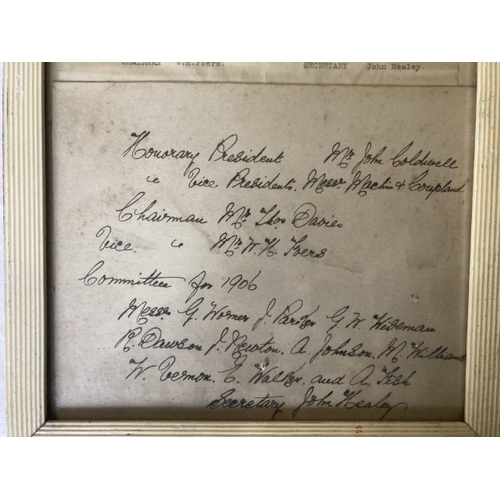 CHAIRMAN SECRETARY John Healey.
Honorary President Mr John Coldwell
" Vice Presidents. Messrs Machin & Coupland
Chairman Mr Thos Davies
Vice " Mr W. H. Ivers
Committee for 1906
Messrs G. Worner J. Parker G. W. Wiseman
R. Dawson J. Newton. A. Johnson. M. Williams
W. Vernon. E. Walker. and A. Fish
Secretary John Healey